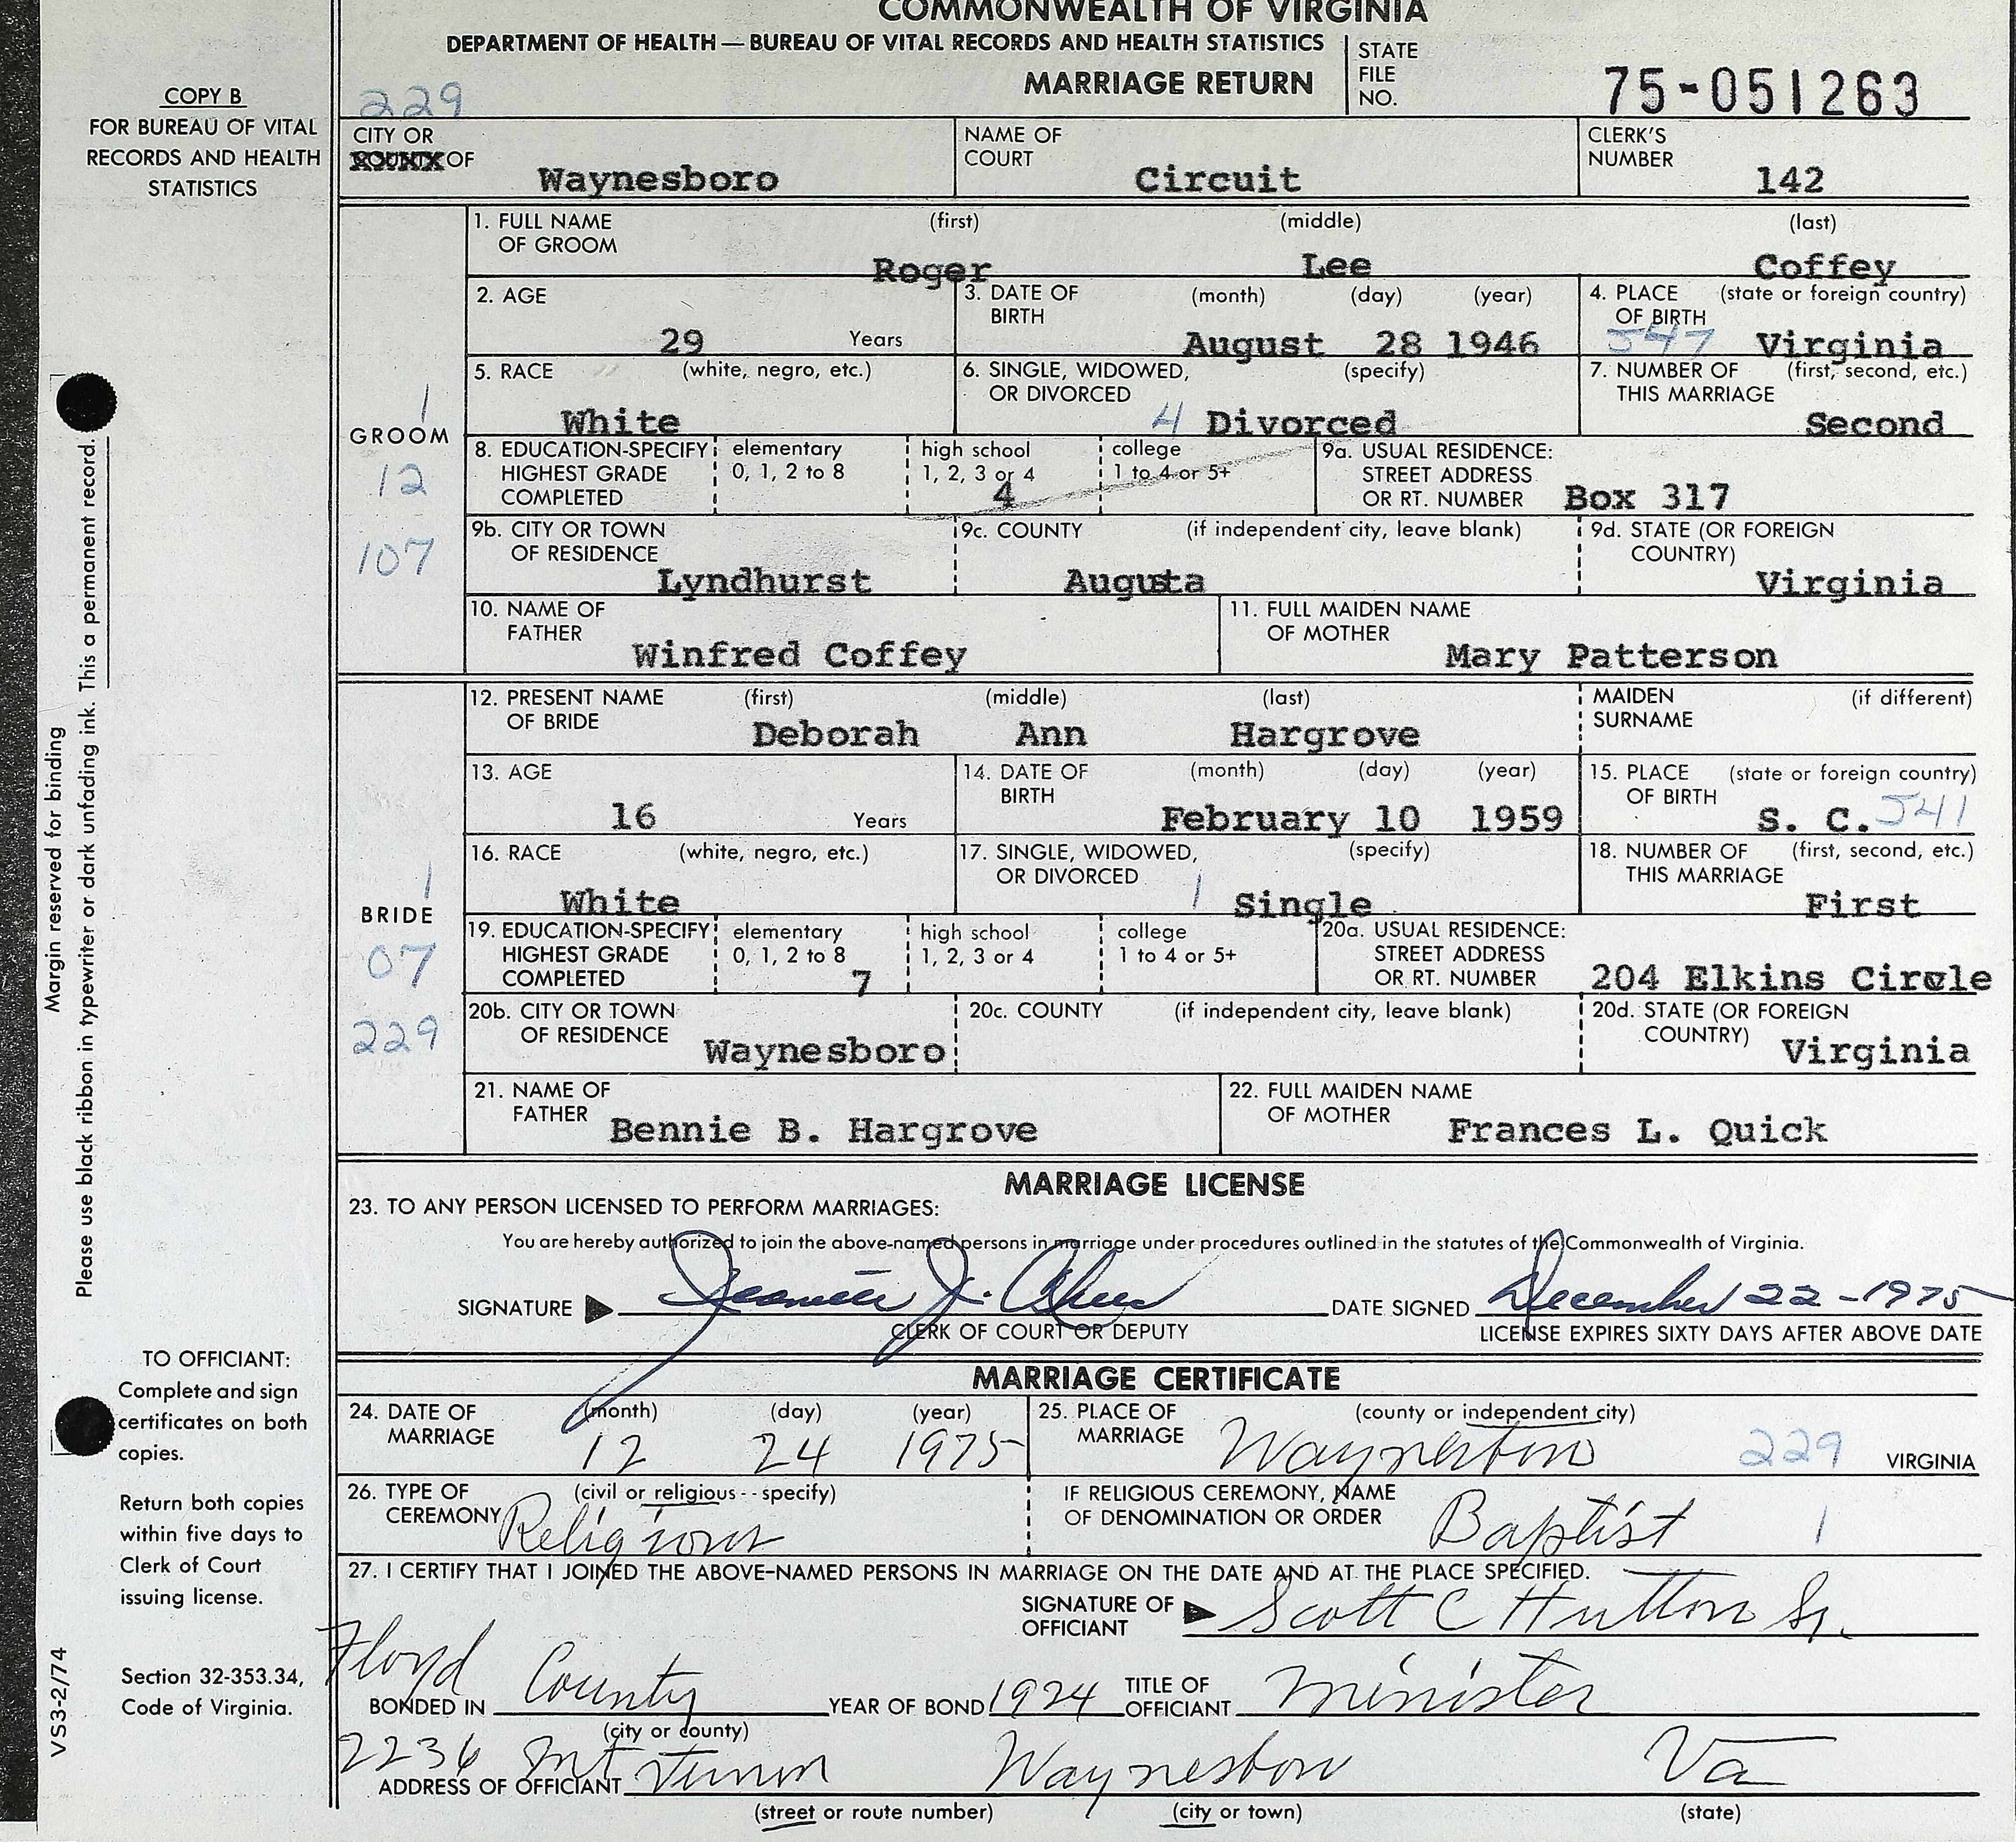 COMMONWEALTH OF VIRGINIA
DEPARTMENT OF HEALTH — BUREAU OF VITAL RECORDS AND HEALTH STATISTICS
MARRIAGE RETURN
STATE FILE NO. 75-051263
229
COPY B
FOR BUREAU OF VITAL
RECORDS AND HEALTH
STATISTICS
CITY OR COUNTY OF Waynesboro
NAME OF COURT Circuit
CLERK'S NUMBER 142
GROOM
1
12
107
1. FULL NAME OF GROOM (first) (middle) (last)
Roger Lee Coffey
2. AGE 29 Years
3. DATE OF BIRTH (month) (day) (year)
August 28 1946
4. PLACE OF BIRTH (state or foreign country)
547 Virginia
5. RACE (white, negro, etc.)
White
6. SINGLE, WIDOWED, OR DIVORCED (specify)
4 Divorced
7. NUMBER OF THIS MARRIAGE (first, second, etc.)
Second
8. EDUCATION-SPECIFY HIGHEST GRADE COMPLETED
elementary 0, 1, 2 to 8
high school 1, 2, 3 or 4
4
college 1 to 4 or 5+
9a. USUAL RESIDENCE: STREET ADDRESS OR RT. NUMBER Box 317
9b. CITY OR TOWN OF RESIDENCE Lyndhurst
9c. COUNTY (if independent city, leave blank)
Augusta
9d. STATE (OR FOREIGN COUNTRY)
Virginia
10. NAME OF FATHER Winfred Coffey
11. FULL MAIDEN NAME OF MOTHER Mary Patterson
BRIDE
1
07
229
12. PRESENT NAME OF BRIDE (first) (middle) (last)
Deborah Ann Hargrove
MAIDEN SURNAME (if different)
13. AGE 16 Years
14. DATE OF BIRTH (month) (day) (year)
February 10 1959
15. PLACE OF BIRTH (state or foreign country)
S. C. 541
16. RACE (white, negro, etc.)
White
17. SINGLE, WIDOWED, OR DIVORCED (specify)
1 Single
18. NUMBER OF THIS MARRIAGE (first, second, etc.)
First
19. EDUCATION-SPECIFY HIGHEST GRADE COMPLETED
elementary 0, 1, 2 to 8
7
high school 1, 2, 3 or 4
college 1 to 4 or 5+
20a. USUAL RESIDENCE: STREET ADDRESS OR RT. NUMBER 204 Elkins Circle
20b. CITY OR TOWN OF RESIDENCE Waynesboro
20c. COUNTY (if independent city, leave blank)
20d. STATE (OR FOREIGN COUNTRY) Virginia
21. NAME OF FATHER Bennie B. Hargrove
22. FULL MAIDEN NAME OF MOTHER Frances L. Quick
MARRIAGE LICENSE
23. TO ANY PERSON LICENSED TO PERFORM MARRIAGES:
You are hereby authorized to join the above-named persons in marriage under procedures outlined in the statutes of the Commonwealth of Virginia.
SIGNATURE J.
DATE SIGNED December 22-1975
CLERK OF COURT OR DEPUTY
LICENSE EXPIRES SIXTY DAYS AFTER ABOVE DATE
MARRIAGE CERTIFICATE
24. DATE OF MARRIAGE (month) (day) (year)
12 24 1975
25. PLACE OF MARRIAGE (county or independent city)
Waynesboro 229 VIRGINIA
26. TYPE OF CEREMONY (civil or religious--specify)
Religious
IF RELIGIOUS CEREMONY, NAME OF DENOMINATION OR ORDER Baptist 1
27. I CERTIFY THAT I JOINED THE ABOVE-NAMED PERSONS IN MARRIAGE ON THE DATE AND AT THE PLACE SPECIFIED.
SIGNATURE OF OFFICIANT Scott C Hutton Sr.
BONDED IN Floyd County
(city or county)
YEAR OF BOND 1924
TITLE OF OFFICIANT minister
ADDRESS OF OFFICIANT 2236 Mt Vernon Waynesboro Va
(street or route number) (city or town) (state)
Margin reserved for binding
Please use black ribbon in typewriter or dark unfading ink. This a permanent record.
TO OFFICIANT:
Complete and sign
certificates on both
copies.
Return both copies
within five days to
Clerk of Court
issuing license.
Section 32-353.34,
Code of Virginia.
VS3-2/74